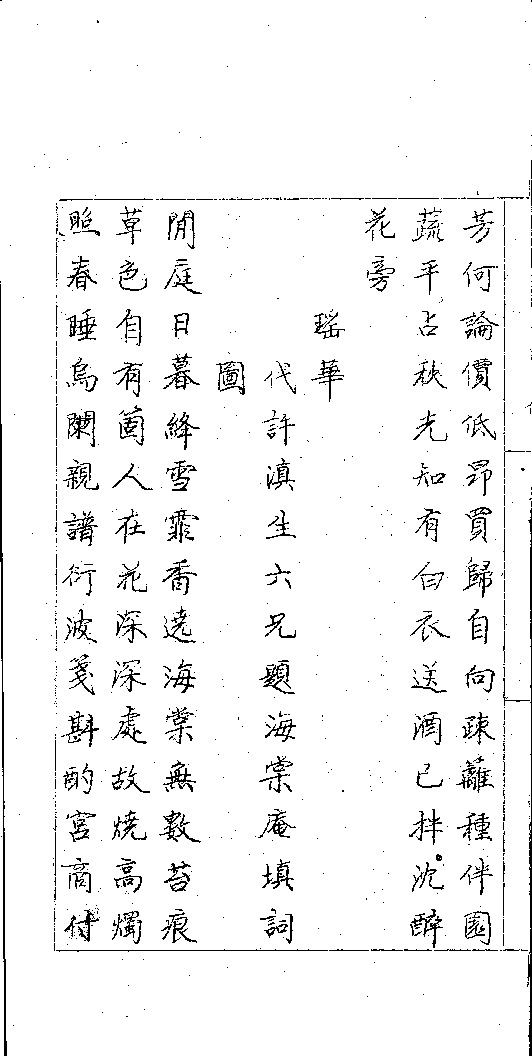 芳何論價低昻買歸自向疎蘺種伴園
蔬平占秋光知有白衣送酒已拌沈醉
花旁
瑶華
代許滇生六兄題海棠庵填詞
圖
閒庭日暮絳雪霏香遶海棠無數苔痕
草色自有箇人在花深深處故燒高燭
照春睡烏闌親譜衍波箋斟酌宮商付